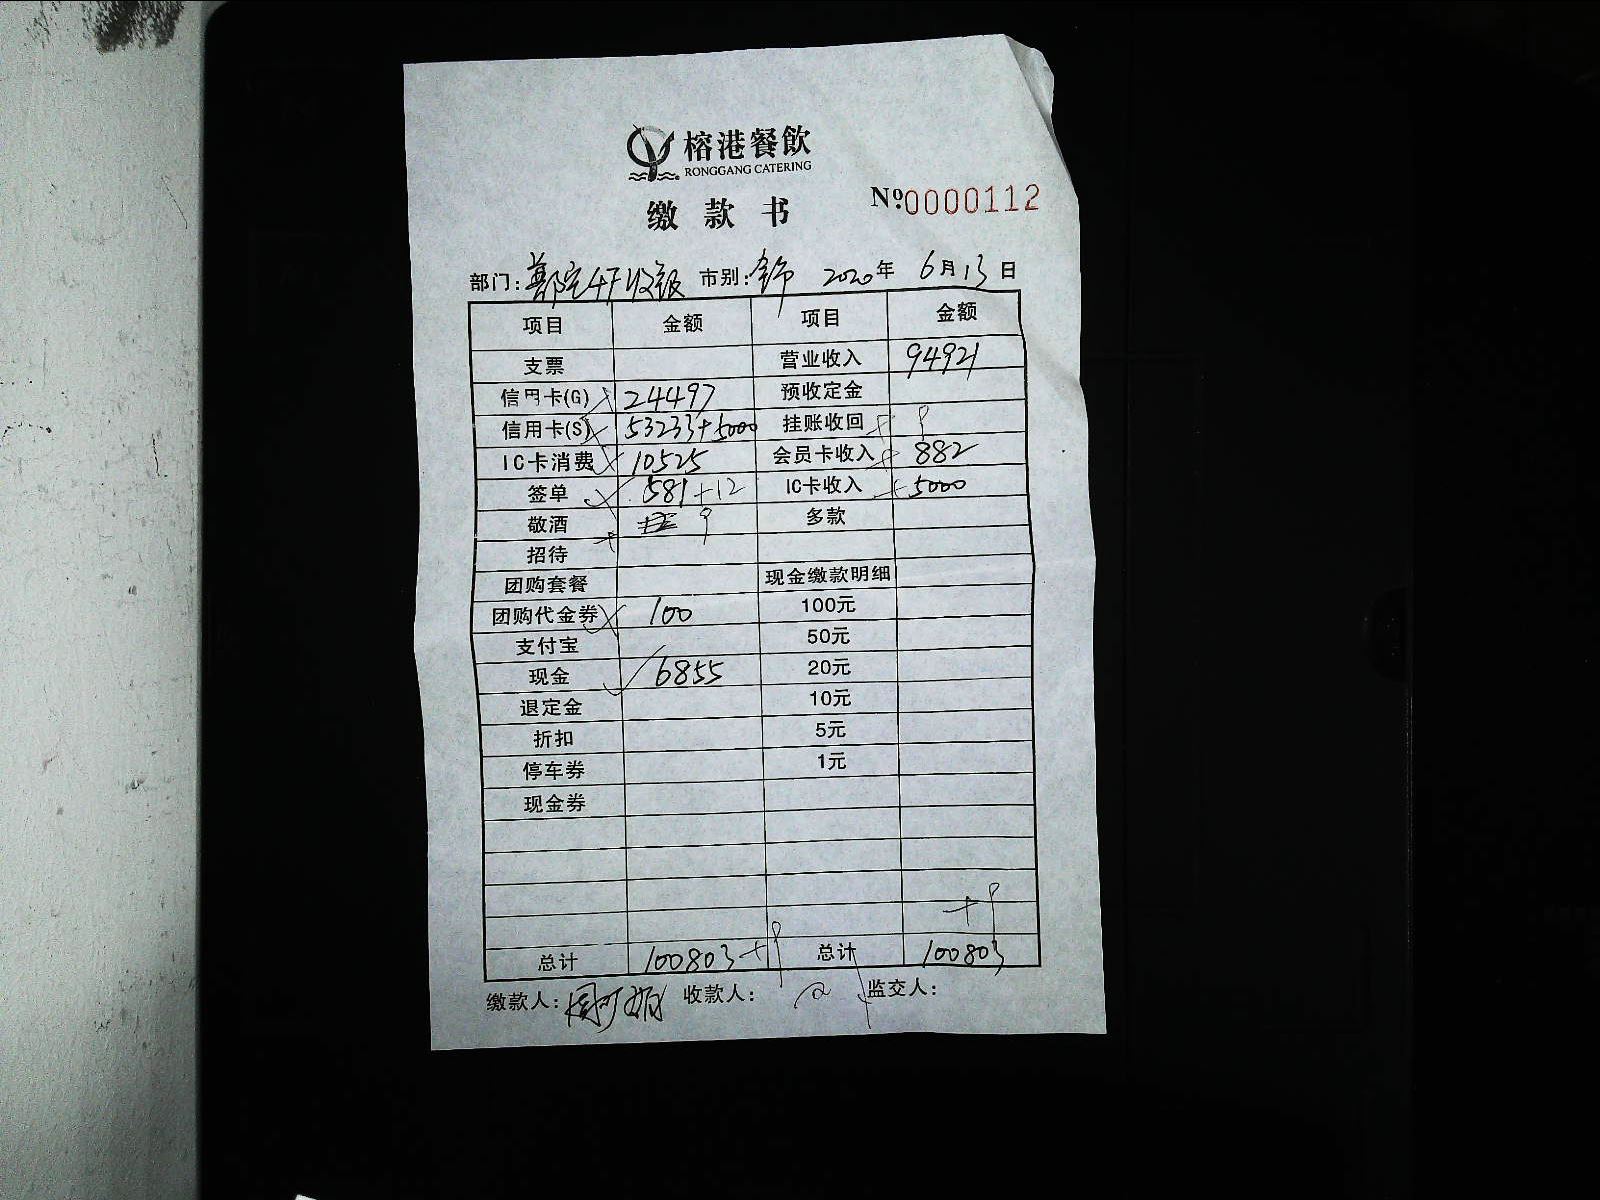 榕港餐飲
RONGGANG CATERING
缴款书
№:0000112
部门: 4F收银 市别: 2020年 6月13日
项目 金额 项目 金额
支票 营业收入 94921
信用卡(G) 24497 预收定金
信用卡(S) 53233+5000 挂账收回
IC卡消费 10525 会员卡收入 882
签单 581+12 IC卡收入 5000
敬酒 多款
招待
团购套餐 现金缴款明细
团购代金券 100 100元
支付宝 50元
现金 6855 20元
退定金 10元
折扣 5元
停车券 1元
现金券
总计 100803 总计 100803
缴款人: 收款人: 监交人: